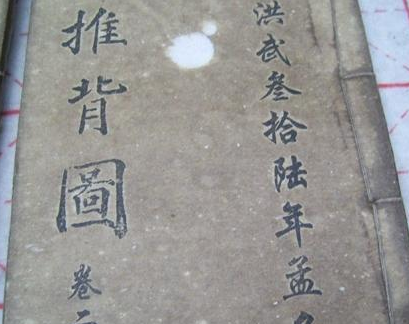 洪武叁拾陆年孟
推背圖 卷